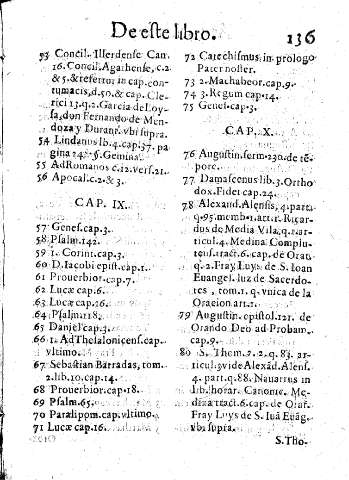 De este libro. 136
53 Concil. Illerdense Can.
16. Concil. Agathense, c. 2
& 5. & refertur in cap. con-
tumacis, d. 50. & cap. Cle-
rici 13. q. 2. Garcia de Loy-
sa, don Fernando de Men-
doza y Durant. vbi supra.
54 Lindanus lib. 4. cap. 37. pa
gina 242. §. Gemina.
55 Ad Romanos c. 12. vers. 21.
56 Apocal. c. 2. & 3.
CAP. IX.
57 Genes. cap. 3.
58 Psalm. 142.
59 1. Corint. cap. 3.
60 D. Iacobi epist. cap. 1.
61 Prouerbior. cap. 7.
62 Lucæ cap. 6.
63 Lucæ cap. 16.
64 Psalm. 118.
65 Daniel cap. 3.
66 1. Ad Thesalonicens. cap.
vltimo.
67 Sebastian Barradas, tom.
2. lib. 10. cap. 14.
68 Prouerbior. cap. 18.
69 Psalm. 65.
70 Paralippm. cap. vltimo.
71 Lucæ cap. 16.
72 Catechismus in prologo
Pater noster.
73 2. Machabeor. cap. 9.
74 3. Regum cap. 14.
75 Genes. cap. 3.
CAP. X.
76 Augustin. serm. 230. de tē-
pore.
77 Damascenus lib. 3. Ortho
dox. Fidei cap. 24.
78 Alexand. Alensis, 4. part.
q. 95. memb. 1. art. 1. Ricar-
dus de Media Vila, q. 1. ar-
ticul. 4. Medina Complu-
tens. tract. 6. cap. de Orat.
q. 2. Fray Luys de S. Ioan
Euangel. luz de Sacerdo-
tes, tom. 1. q. vnica de la
Oraeion art. 1.
79 Augustin. epistol. 121. de
Orando Deo ad Probam,
cap. 9.
80 S. Thom. 2. 2. q. 83. ar-
ticul. 3. vide Alexād. Alens.
4. part. q. 88. Nauarrus in
lib. horar. Canonic. Me-
diza tract. 6. cap. de Orat.
Fray Luys de S. Iuā Euāg.
vbi supra.
S. Tho-